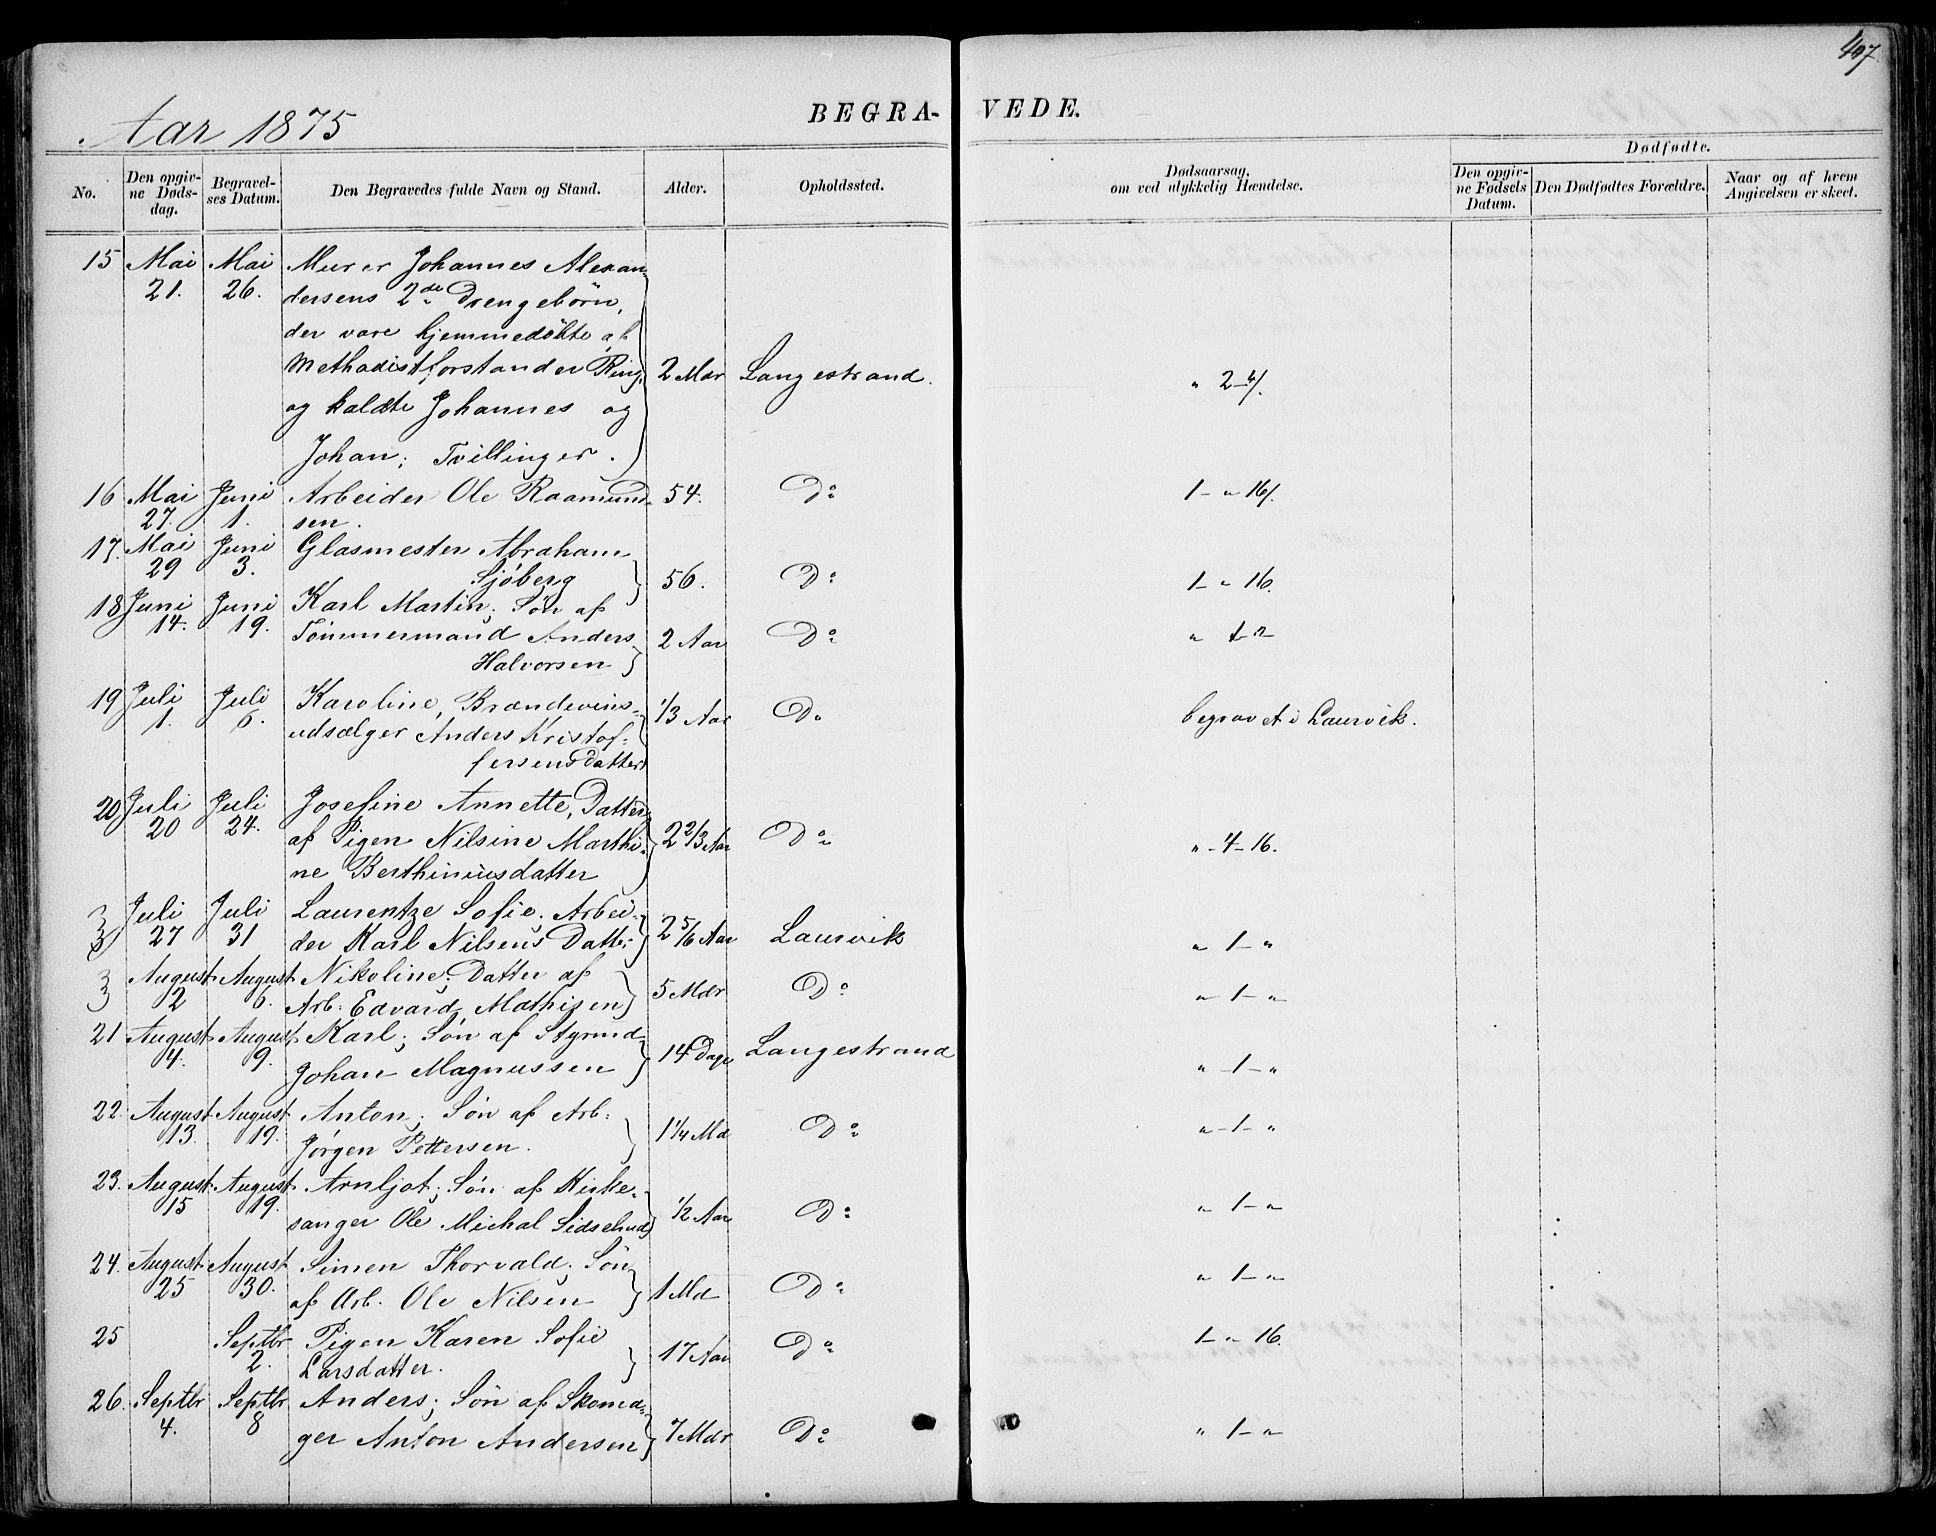 497.
Aar 1875
BEGRA-VEDE.
No. | Den opgivne Dødsdag. | Begravelses Datum. | Den Begravedes fulde Navn og Stand. | Alder. | Opholdssted. | Dødsaarsag, om ved ulykkelig Hændelse. | Dødfødte.
Den opgivne Fødsels Datum. | Den Dødfødtes Forældre. | Naar og af hvem Angivelsen er skeet.
15 Mai Mai Murer Johannes Alexan-
21. 26. dersens 2de Drengebörn,
der vare hjemmedöbte af
Methodistforstander Ring, 2 Mdr Langestrand.
og kaldte Johannes og
Johan; Tvillinger.
16 Mai Juni Arbeider Ole Raamund- 54. Do 1 - " 16/.
27. 1. sen.
17. Mai Juni Glasmester Abraham
29 3. Sjöberg 56. Do 1 - " 16.
18 Juni Juni Karl Martin; Sön af
14. 19. Tömmermand Anders 2 Aar Do
Halvorsen
19 Juli Juli Karoline, Brændevins- 1/3 Aar Do begravet i Laurvik.
1. 6. udsælger Anders Kristof-
fersens Datter
20 Juli Juli Josefine Annette, Datter
20 24. af Pigen Nilsine Marthi- 2 2/3 Aar Do " - 4 - 16.
ne Berthiniusdatter
Juli Juli Laurentze Sofie. Arbei-
27 31 der Karl Nilsens Datter 2 5/6 Aar Laurvik " 1 - "
August August Nikoline; Datter af
2 6. Arb: Edvard Mathisen 5 Mdr Do " - 1 - "
21 August August Karl; Sön af Styrmd-
4. 9. Johan Magnussen 14 Dage Langestrand " - 1 - "
22. August August Anton; Sön af Arb:
13. 19. Jörgen Pettersen. 1 1/4 Md Do " - 1 - "
23. August August Arnljot; Sön af Kirke-
15 19. sanger Ole Michal 1/2 Aar Do " 1 - "
24. August August Simen Thorvald; Sön
25 30. af Arb. Ole Nilsen 1 Md Do " 1 - "
25 Septbr Pigen Karen Sofie
2. Larsdatter. 17 Aar Do 1 - " 16.
26. Septbr Septbr Anders; Sön af Skoma-
4. 8 ger Anton Andersen 7 Mdr Do " 1 - "